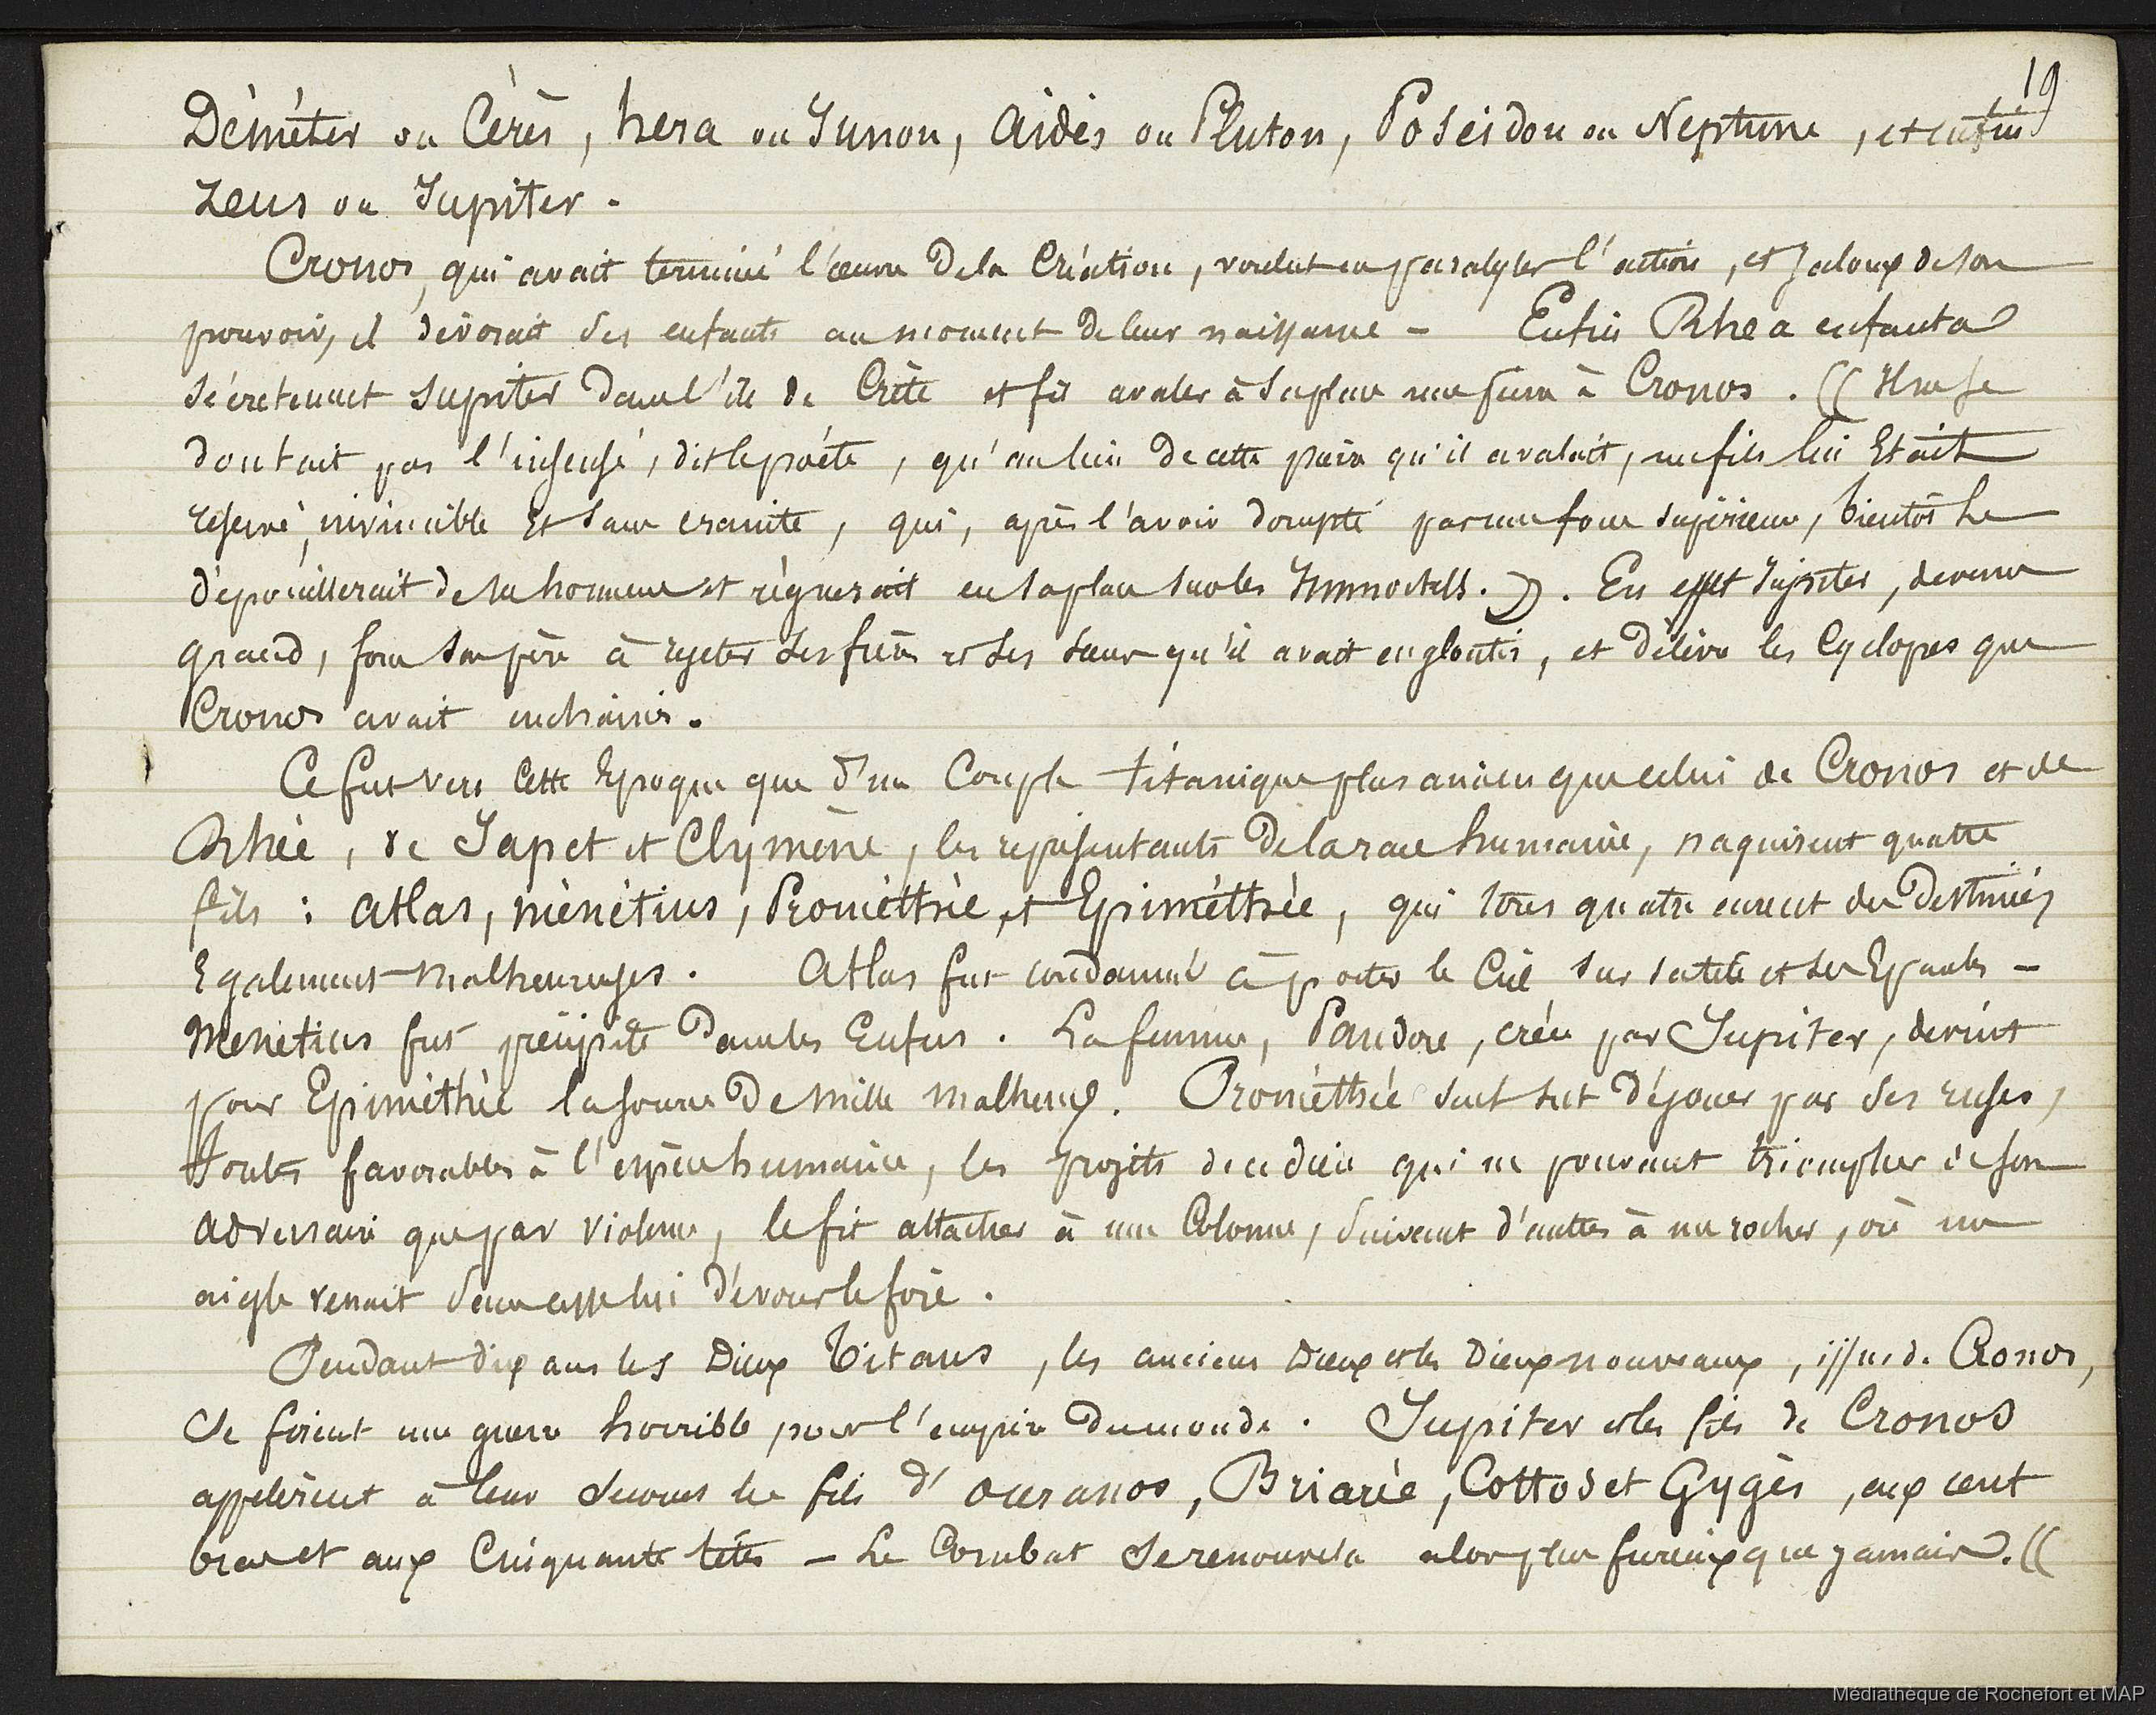 19
Déméter ou Cérès, hera ou Junon, Aidès ou Pluton, Poseidon ou Neptune, et enfin
Zeus ou Jupiter.
Cronos, qui avait terminé l'œuvre de la Création, voulut en paralyser l'action, et jaloux de son
pouvoir, il dévorait ses enfants au moment de leur naissance – Enfin Rhea enfanta
sécretement Jupiter dans l'île de Crète et fit avaler à sa place une pierre à Cronos. (( Il ne se
doutait pas l'insensé, dit le poéte, qu'au lieu de cette pierre qu'il avalait, un fils lui Etait
reservé, invincible Et sans crainte, qui, après l'avoir dompté par une force supérieure, bientôt le
dépouillerait de ses honneurs et règnerait en sa place sur les Immortels. )). En effet Jupiter, devenu
grand, força son père à rejeter ses frères et ses sœurs qu'il avait engloutis, et délivra les Cyclopes que
Cronos avait enchainés.
Ce fut vers cette Epoque que d'un Couple titanique plus ancien que celui de Cronos et de
Rhée, de Japet et Clymène, les représentants de la race humaine, naquirent quatre
fils : Atlas, ménétius, Prométhée et Epiméthée, qui tous quatre eurent des Destinées
Egalement malheureuses. Atlas fut condamné à porter le Ciel sur sa tête et ses Epaules –
Menetius fut précipité dans les Enfers. La femme, Pandore, créée par Jupiter, devint
pour Epiméthée la source de mille malheurs. Prométhée seul sut déjouer par ses ruses,
toutes favorables à l'espèce humaine, les projets de ce dieu qui ne pouvant triompher de son
adversaire que par violence, le fit attacher à une Colonne, suivant d'autres à un rocher, où un
aigle venait sans cesse lui dévorer le foie.
Pendant dix ans les Dieux Titans, les anciens Dieux et les Dieux nouveaux, issus de Cronos,
se firent une guerre horrible pour l'empire du monde. Jupiter et les fils de Cronos
appelèrent à leur secours les fils d'Ouranos, Briarée, Cottos et Gygès, aux cent
bras et aux Cinquante têtes – Le Combat se renouvela alors plus furieux que jamais. ((
Médiathèque de Rochefort et MAP